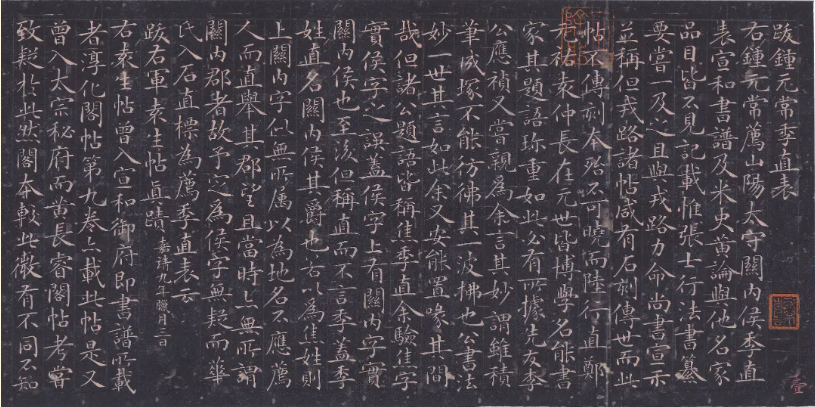 跋鍾元常季直表
右鍾元常薦山陽太守關内侯季直
表宣和書譜及米史黄論與他名家
品目皆不見記載惟張士行法書纂
要嘗一及之且與戎路力命尚書宣示
並稱但戎路諸帖咸有石刻傳世而此
帖不傳刻本殆不可曉而陸行直鄭
元祐袁仲長在元世皆博學名能書
家其題語珎重如此必有所據先友李
公應禎又嘗親為余言其妙謂雖積
筆成塚不能彷彿其一波拂也公書法
妙一世其言如此余又安能置喙其間
哉但諸公題語皆稱焦季直余驗焦字
實侯字之誤蓋侯字上有關内字實
關内侯也至後但稱直而不言季蓋季
姓直名關内侯其爵也若以為焦姓則
上關内字似無所属以為地名不應薦
人而直舉其郡望且當時亦無所謂
關内郡者故予定為侯字無疑而華
氏入石直標為薦季直表云
跋右軍袁生帖真蹟 嘉靖九年臘月二日
右袁生帖曾入宣和御府即書譜所載
者淳化閣帖第九卷亦載此帖是又
曾入太宗秘府而黄長睿閣帖考嘗
致疑於此然閣本較此微有不同不知